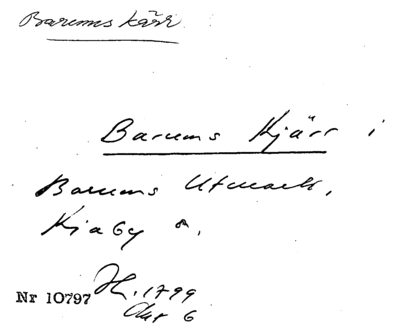 Barums kärr
Barums Kjärr i
Barums Utmark,
Kiaby s.
Nr 10797 H. 1799
Akt 6